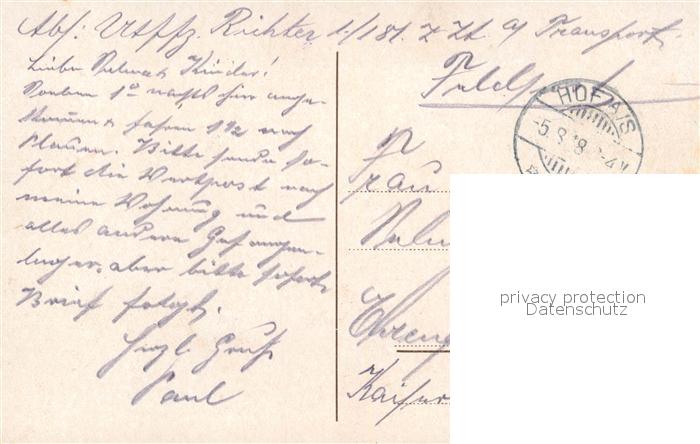 Abs: Utffz. Richter 1./181. z. Zt. a/ Transport.
Feldp
HOF A/S
5.8.18
Liebe Selma u. Kinder!
Soeben 1° nachts hier ange-
kommen fahren 1 1/2 nach
Plauen. Bitte sende so-
fort die Wertpost nach
meine Wohnung und
alles andere Gefangen-
lager, aber bitte sofort
Brief folgt.
Herzl. Gruß
Paul
Frau
Selm
Ehren
Kaiser
privacy protection
Datenschutz